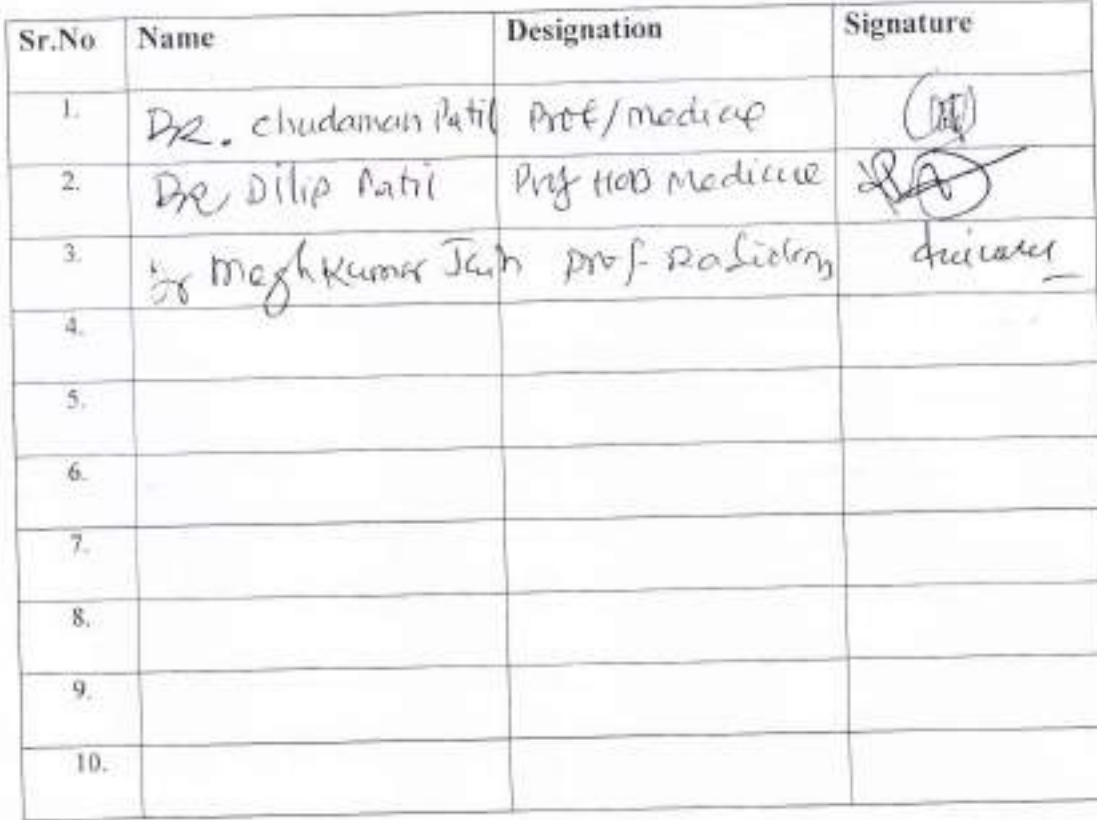 Sr.No Name Designation Signature
1. DR. chudaman Patil Prof/medicine
2. DR Dilip Patil Prof HOD Medicine
3. Dr Meghkumar Jain prof-Radiology
4.
5.
6.
7.
8.
9.
10.